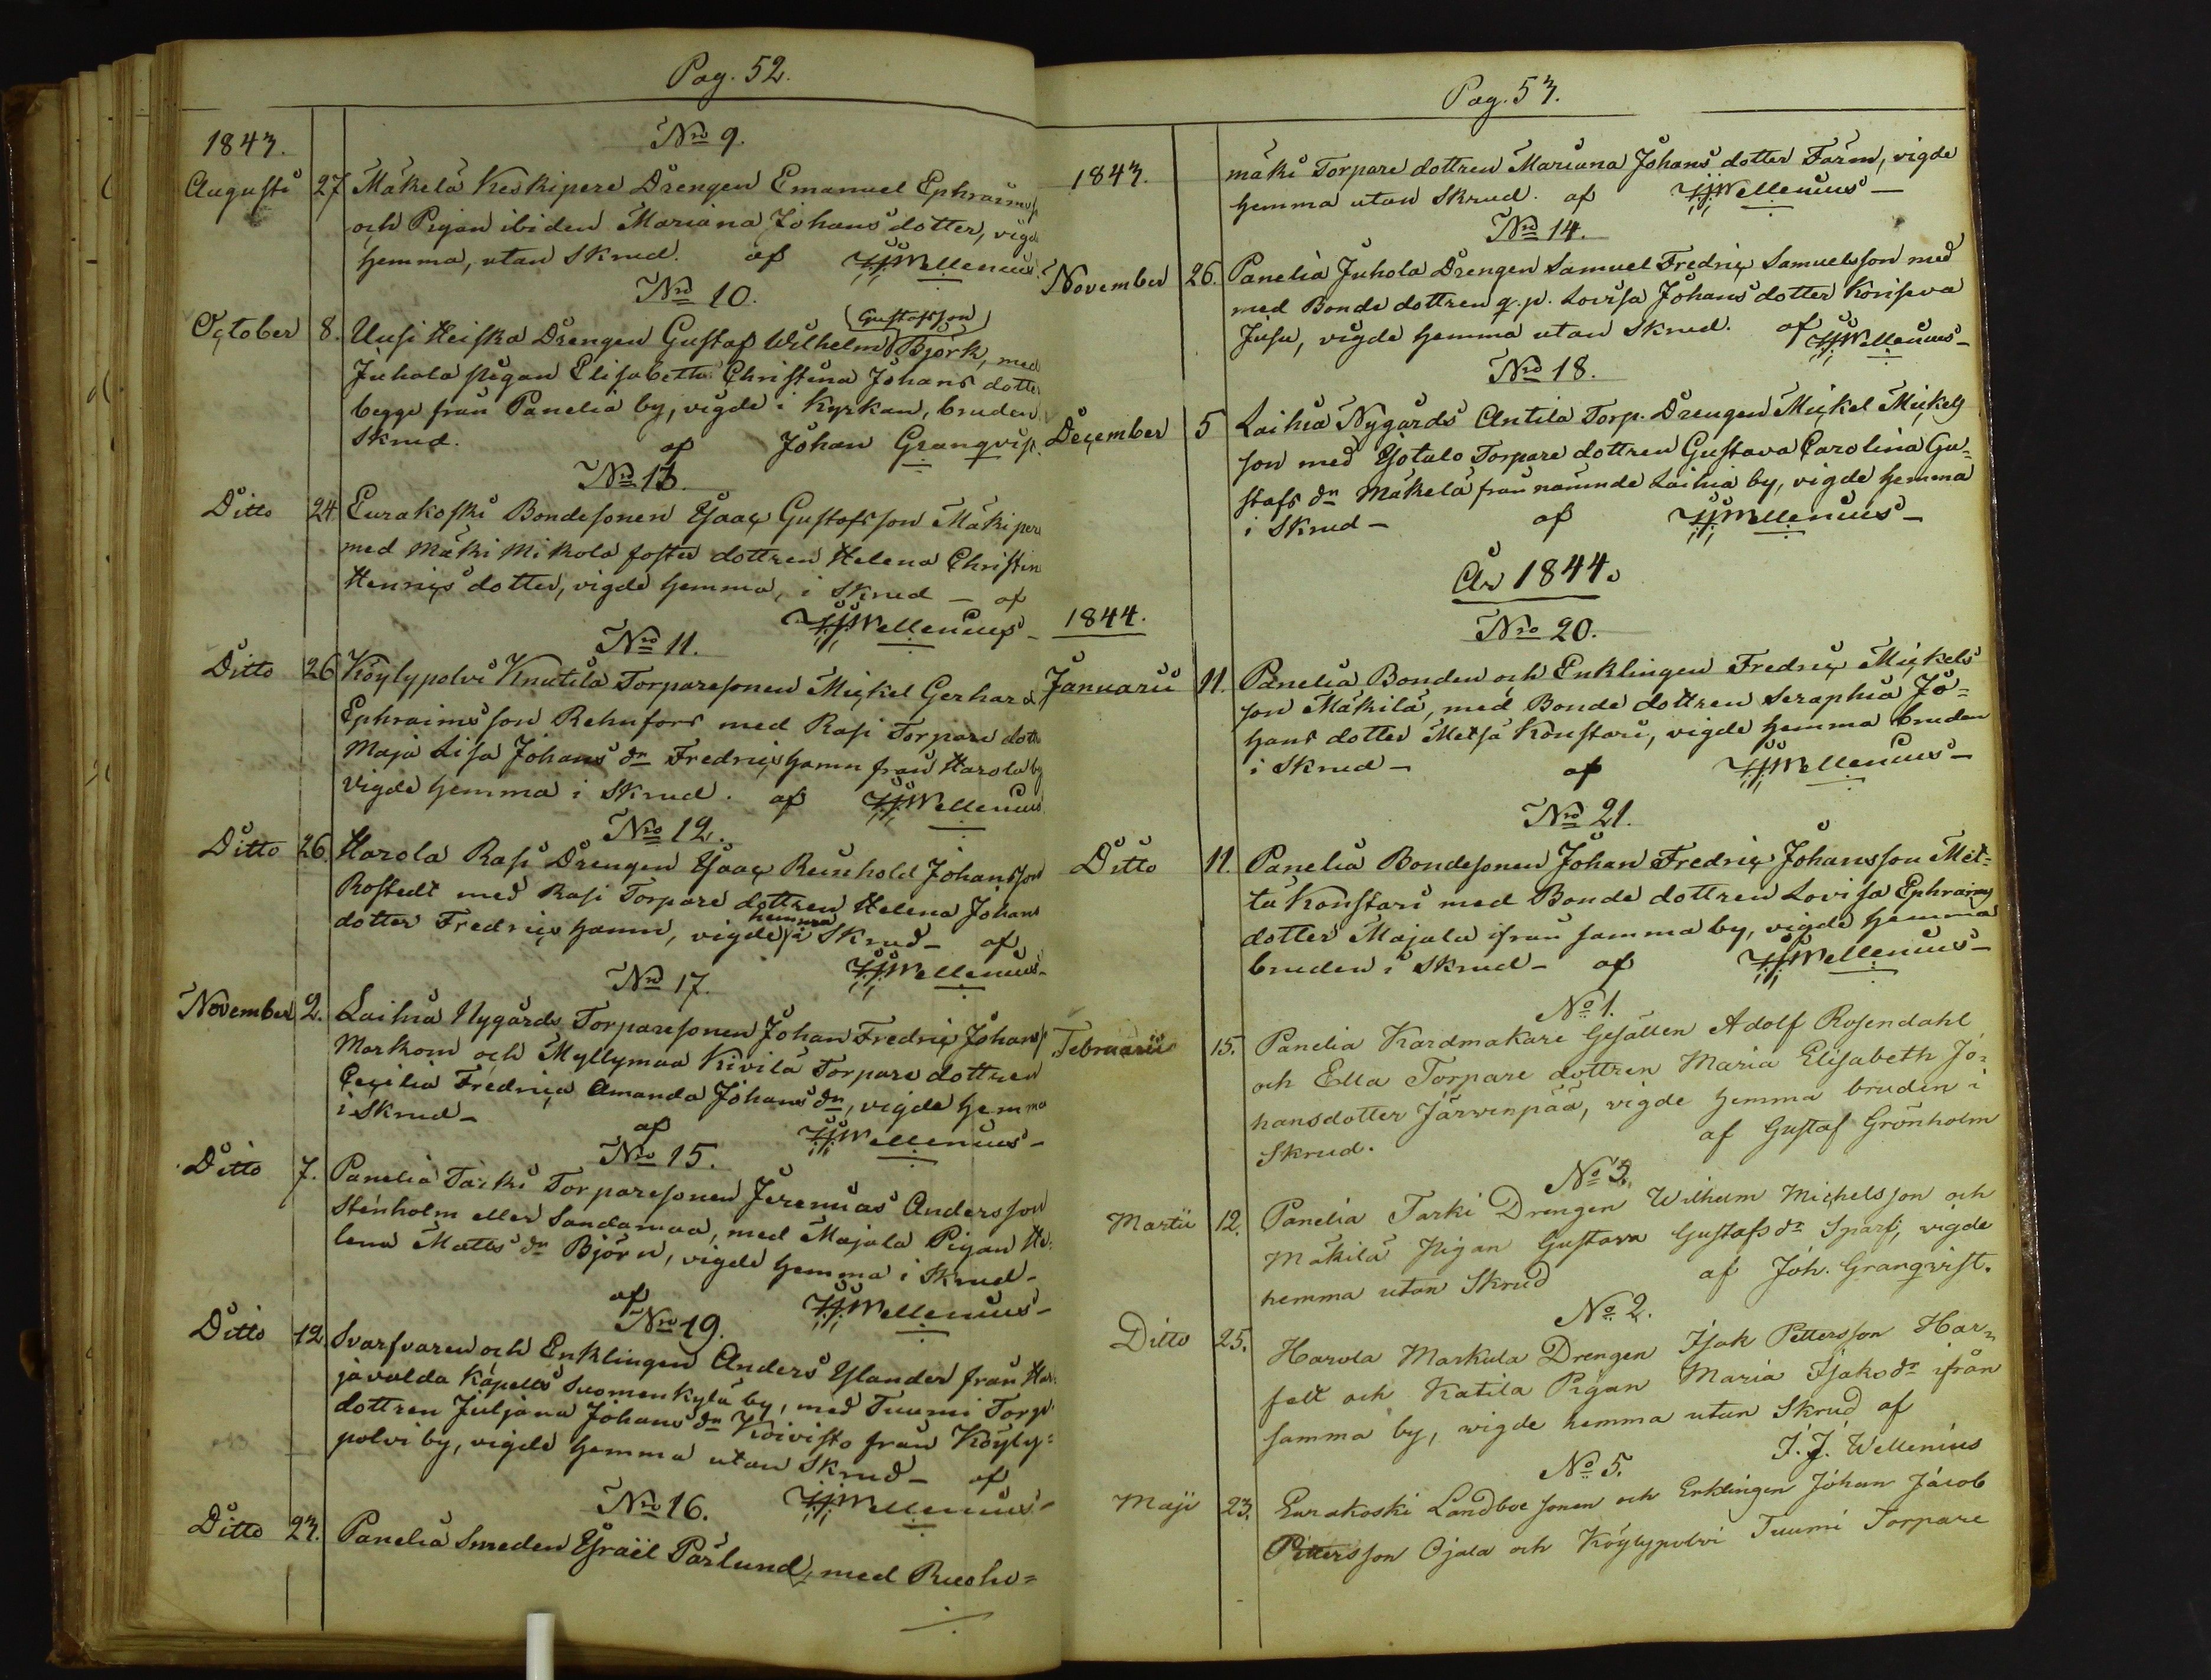 Pag. 52.
1843.
Nro 9.
Augusti 27 Mäkelä Keskipere Drengen Emanuel Ephraims
och Pigan ibiden Mariana Johans dotter, vigde
hemma, utan Skrud. af IJWellenius
Nro 10.
(Gustafsson)
October 8. Uusi Heiska Drengen Gustaf Wilhelm Björk, med
Juhola pigan Elisabetha Christina Johans dotte
begge från Panelia by, vigde i Kyrkan, bruden
Skrud. af Johan Granqvist.
Nro 13.
Ditto 24 Eurakoski Bondesonen Isaac Gustafsson Mäkiper
med Mäki Mikola foster dottren Helena Christin
Henrics dotter, vigde hemma, i Skrud — af
IJWellenius —
Nro 11.
Ditto 26 Köylypolvi Knutila Torparesonen Mickel Gerhard
Ephraims son Rehnfors med Rasi Torpare dott
Maja Lisa Johans dr Fredricshamn från Harola by
vigde hemma i Skrud. af IJWellenius
Nro 12.
Ditto 26. Harola Rasi Drengen Isaac Reinhold Johansson
Rostedt med Rasi Torpare dottren Helena Johans
hemma
dotter Fredrics hamn, vigde i Skrud — af
IJWellenius —
Nro 17.
November 2. Laihia Nygårds Torparesonen Johan Fredric Johans
Markom och Myllymaa Kivilä Torpare dottren
Cecilia Fredrica Amanda Johans dr, vigde hemma
i Skrud — af IJWellenius —
Nro 15.
Ditto 7. Panelia Tarki Torparesonen Jeremias Andersson
Stenholm eller Sandamaa, med Majala Pigan He-
lena Matts dr Björn, vigde hemma i Skrud —
af IJWellenius —
Nro 19.
Ditto 12. Svarfvaren och Enklingen Anders Ylander från Har-
javalda Kapells Suomenkylä by, med Tuumi Torp.
dottren Juljana Johans dr Koivisto från Köyly-
polvi by, vigde hemma utan Skrud — af
IJWellenius —
Nro 16.
Ditto 23. Panelia Smeden Israël Pärlund, med Ruoho=
Pag. 53.
1843.
mäki Torpare dottren Mariana Johans dotter Färm, vigde
hemma utan Skrud. af IJWellenius —
Nro 14.
November 26. Panelia Juhola Drengen Samuel Fredric Samuelsson med
med Bonde dottren q.p. Lovisa Johans dotter Korpeva
Jusu, vigde hemma utan Skrud. af IJWellenius —
Nro 18.
December 5 Laihia Nygårds Antila Torp. Drengen Mickel Mickels
son med Isotalo Torpare dottren Gustava Carolina Gu=
stafs dr Mäkelä från nämnde Laihia by, vigde hemma
i Skrud — af IJWellenius —
År 1844.
1844.
Nro 20.
Januarii 11. Panelia Bonden och Enklingen Fredric Mickels
son Mäkilä, med Bonde dottren Seraphia Jo=
hans dotter Metsä Konstari, vigde hemma bruden
i Skrud — af IJWellenius —
Nro 21.
Ditto 11. Panelia Bondesonen Johan Fredric Johansson Met=
tä Konstari med Bonde dottren Lovisa Ephraims
dotter Majala ifrån samma by, vigde hemma
bruden i Skrud — af IJWellenius —
No 1.
Februarii 15. Panelia Kardmakare Gesällen Adolf Rosendahl
och Ella Torpare dottren Maria Elisabeth Jo=
hansdotter Järwenpää, vigde hemma bruden i
Skrud. af Gustaf Grönholm
No 3.
Martii 12. Panelia Tarki Drengen Wilhelm Michelsson och
Mäkilä Pigan Gustava Gustafs dr Sparf, vigde
hemma utan Skrud af Joh. Granqvist.
No 2.
Ditto 25. Harola Markula Drengen Isak Pettersson Har=
felt och Katila Pigan Maria Isaks dr ifrån
samma by, vigde hemma utan Skrud af
I. J. Wellenius
No 5.
Maji 23. Eurakoski Landboesonen och Enklingen Johan Jacob
Pettersson Ojala och Köylypolvi Tuumi Torpare